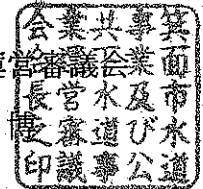 営審議会
博
箕面市水道
事業及び公
共下水道事
業運営審議
会会長之印